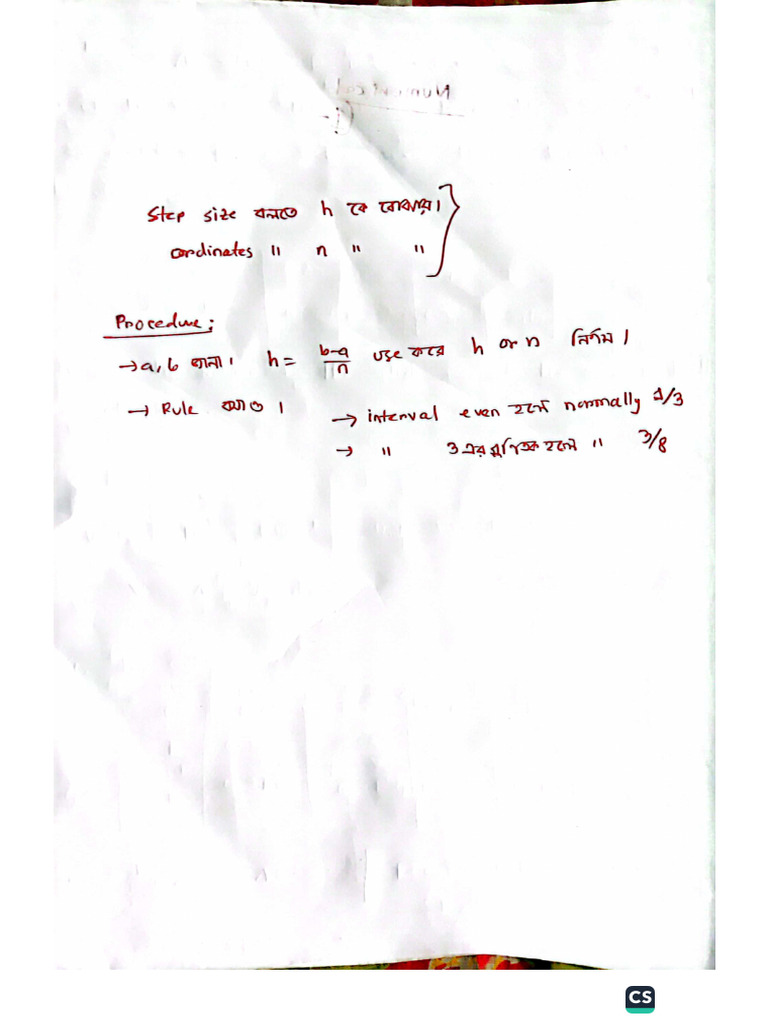 Step size বলতে h কে বোঝায়।
cordinates " n " "
Procedure:
→ a, b জানা। h = b-a/n use করে h or n নির্ণয়।
→ Rule → interval even হলে normally 1/3
→ " 3 এর গুণিতক হলে " 3/8
CS